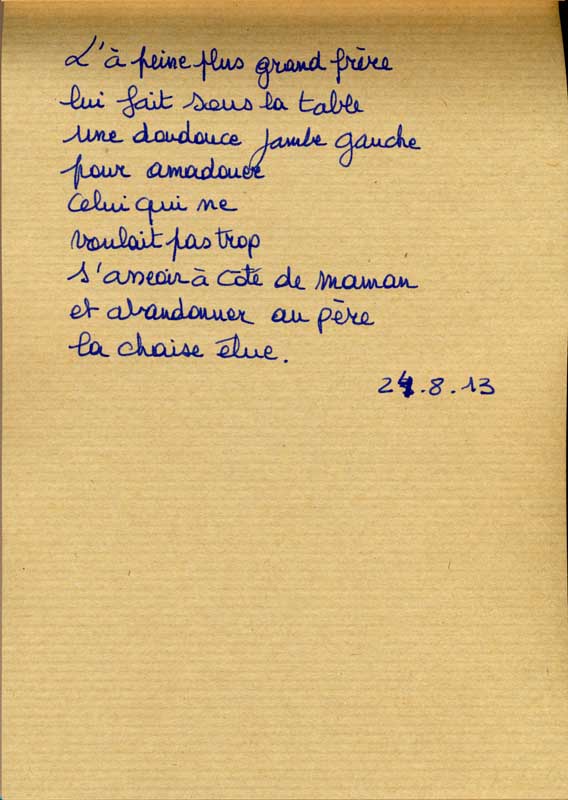 L'à peine plus grand frère
lui fait sous la table
une doudouce jambe gauche
pour amadouer
celui qui ne
voulait pas trop
s'asseoir à côté de maman
et abandonner au père
la chaise élue.
24.8.13